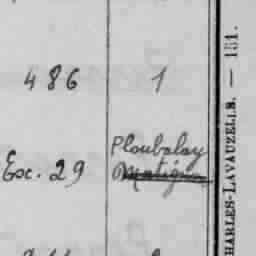 486 1
Ploubalay
Esc. 29 Matignon
CHARLES-LAVAUZELLE. — 151.